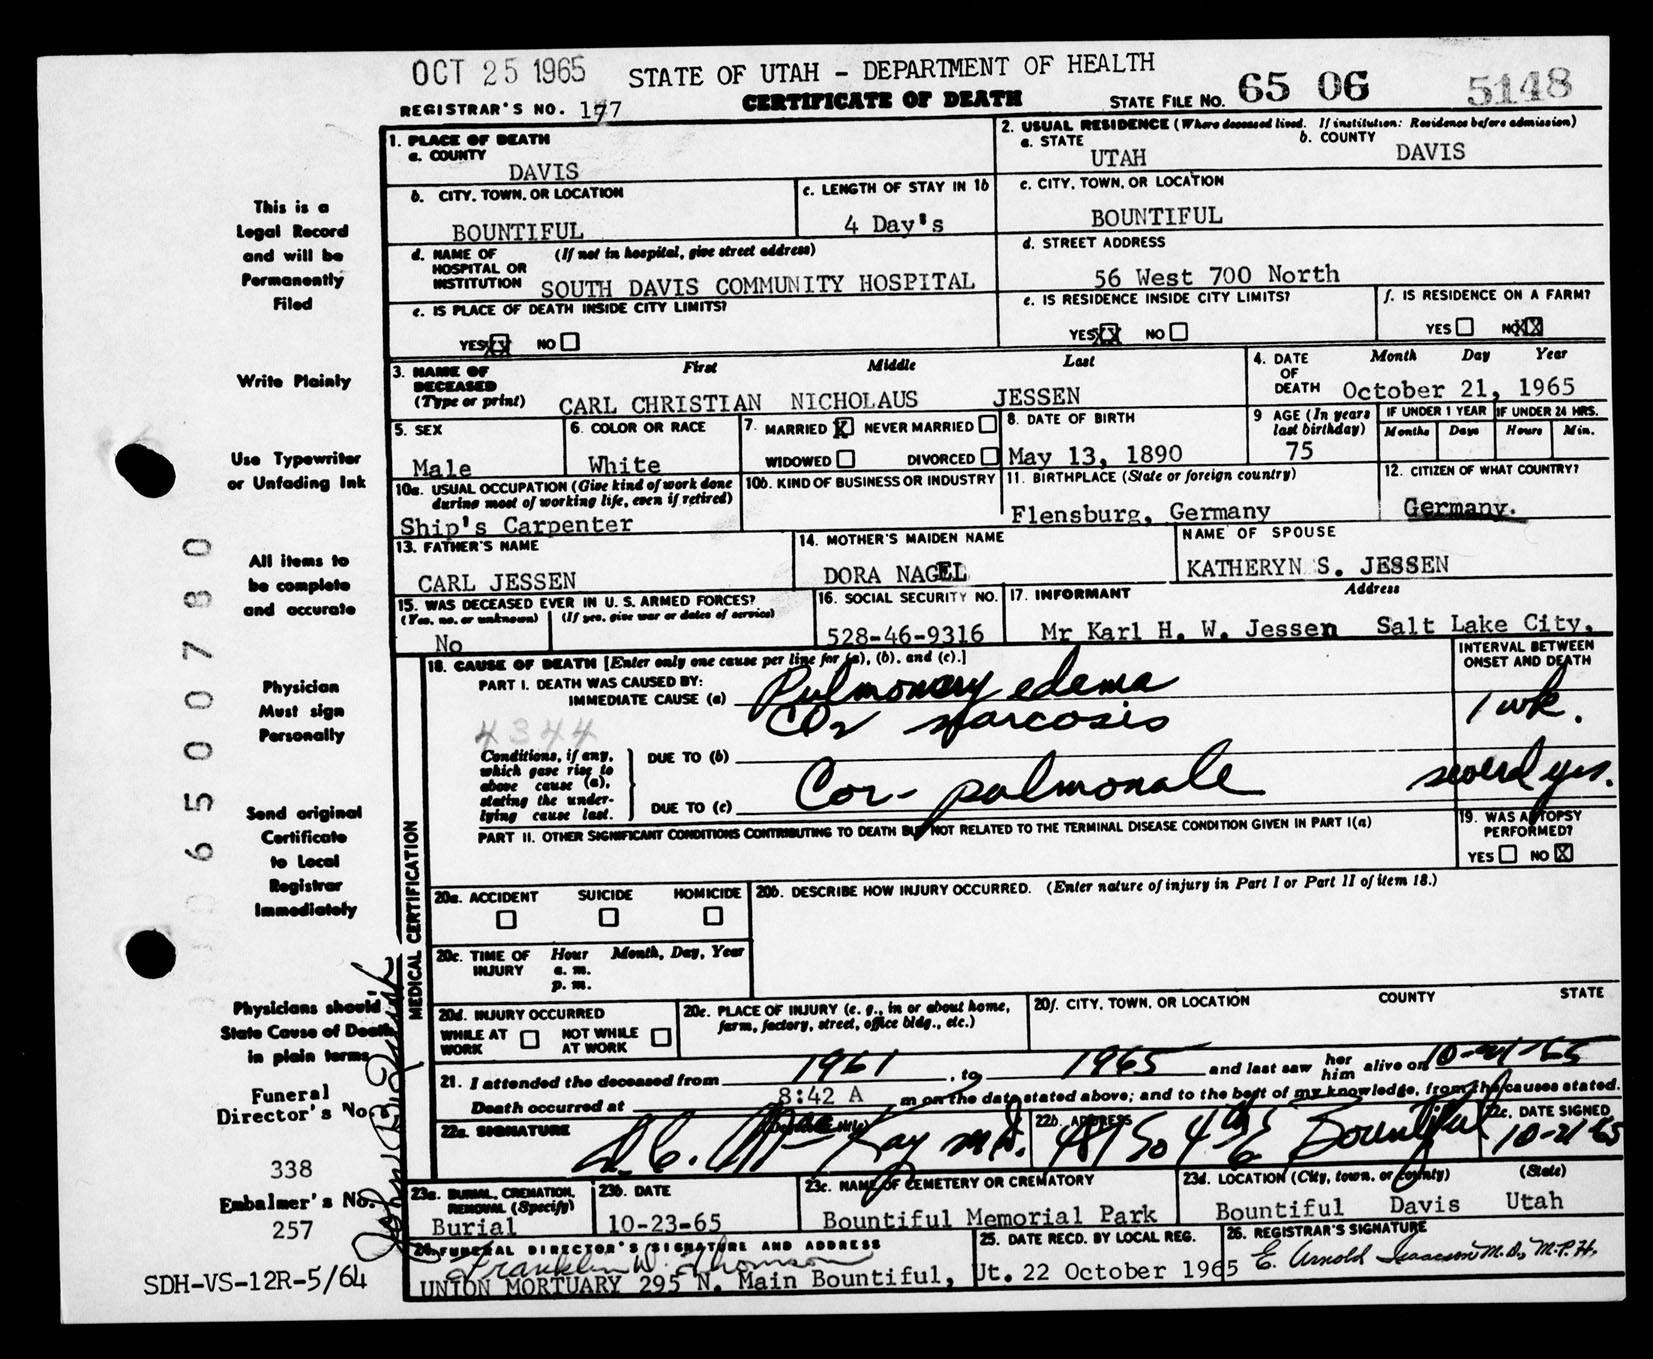 OCT 25 1965
STATE OF UTAH - DEPARTMENT OF HEALTH
REGISTRAR'S NO. 177
CERTIFICATE OF DEATH
STATE FILE NO. 65 06 5148
1. PLACE OF DEATH
a. COUNTY
DAVIS
2. USUAL RESIDENCE (Where deceased lived. If institution: Residence before admission)
a. STATE
UTAH
b. COUNTY
DAVIS
b. CITY, TOWN, OR LOCATION
BOUNTIFUL
c. LENGTH OF STAY IN 1b
4 Day's
c. CITY, TOWN, OR LOCATION
BOUNTIFUL
d. NAME OF HOSPITAL OR INSTITUTION
(If not in hospital, give street address)
SOUTH DAVIS COMMUNITY HOSPITAL
d. STREET ADDRESS
56 West 700 North
e. IS PLACE OF DEATH INSIDE CITY LIMITS?
YES XX NO
e. IS RESIDENCE INSIDE CITY LIMITS?
YES XX NO
f. IS RESIDENCE ON A FARM?
YES NO XX
3. NAME OF DECEASED (Type or print)
First Middle Last
CARL CHRISTIAN NICHOLAUS JESSEN
4. DATE OF DEATH
Month Day Year
October 21, 1965
5. SEX
Male
6. COLOR OR RACE
White
7. MARRIED X NEVER MARRIED
WIDOWED DIVORCED
8. DATE OF BIRTH
May 13, 1890
9 AGE (In years last birthday)
75
IF UNDER 1 YEAR
Months Days
IF UNDER 24 HRS.
Hours Min.
10a. USUAL OCCUPATION (Give kind of work done during most of working life, even if retired)
Ship's Carpenter
10b. KIND OF BUSINESS OR INDUSTRY
11. BIRTHPLACE (State or foreign country)
Flensburg, Germany
12. CITIZEN OF WHAT COUNTRY?
Germany.
13. FATHER'S NAME
CARL JESSEN
14. MOTHER'S MAIDEN NAME
DORA NAGEL
NAME OF SPOUSE
KATHERYN S. JESSEN
15. WAS DECEASED EVER IN U. S. ARMED FORCES?
(Yes, no, or unknown) (If yes, give war or dates of service)
No
16. SOCIAL SECURITY NO.
528-46-9316
17. INFORMANT Address
Mr Karl H. W. Jessen Salt Lake City.
MEDICAL CERTIFICATION
18. CAUSE OF DEATH [Enter only one cause per line for (a), (b), and (c).]
INTERVAL BETWEEN ONSET AND DEATH
PART I. DEATH WAS CAUSED BY:
IMMEDIATE CAUSE (a) Pulmonary edema
CO2 narcosis
1 wk.
4344
Conditions, if any, which gave rise to above cause (a), stating the underlying cause last.
DUE TO (b)
DUE TO (c) Cor-pulmonale
several yrs.
PART II. OTHER SIGNIFICANT CONDITIONS CONTRIBUTING TO DEATH BUT NOT RELATED TO THE TERMINAL DISEASE CONDITION GIVEN IN PART I(a)
19. WAS AUTOPSY PERFORMED?
YES NO X
20a. ACCIDENT SUICIDE HOMICIDE
20b. DESCRIBE HOW INJURY OCCURRED. (Enter nature of injury in Part I or Part II of item 18.)
20c. TIME OF INJURY Hour Month, Day, Year
a. m.
p. m.
20d. INJURY OCCURRED
WHILE AT WORK NOT WHILE AT WORK
20e. PLACE OF INJURY (e. g., in or about home, farm, factory, street, office bldg., etc.)
20f. CITY, TOWN, OR LOCATION COUNTY STATE
21. I attended the deceased from 1961, to 1965 and last saw her him alive on 10-21-65
Death occurred at 8:42 A m on the date stated above; and to the best of my knowledge, from the causes stated.
22a. SIGNATURE
Kay M.D.
22b. ADDRESS
481 So 4th E Bountiful
22c. DATE SIGNED
10-21-65
23a. BURIAL, CREMATION, REMOVAL (Specify)
Burial
23b. DATE
10-23-65
23c. NAME OF CEMETERY OR CREMATORY
Bountiful Memorial Park
23d. LOCATION (City, town, or county) (State)
Bountiful Davis Utah
24. FUNERAL DIRECTOR'S SIGNATURE AND ADDRESS
Franklin W. Thomson
UNION MORTUARY 295 N. Main Bountiful, Ut.
25. DATE RECD. BY LOCAL REG.
22 October 1965
26. REGISTRAR'S SIGNATURE
E. Arnold Isaacson M.D., M.P.H.
This is a
Legal Record
and will be
Permanently
Filed
Write Plainly
Use Typewriter
or Unfading Ink
All items to
be complete
and accurate
Physician
Must sign
Personally
Send original
Certificate
to Local
Registrar
Immediately
Physicians should
State Cause of Death
in plain terms
Funeral
Director's No
338
Embalmer's No.
257
SDH-VS-12R-5/64
6500780
John